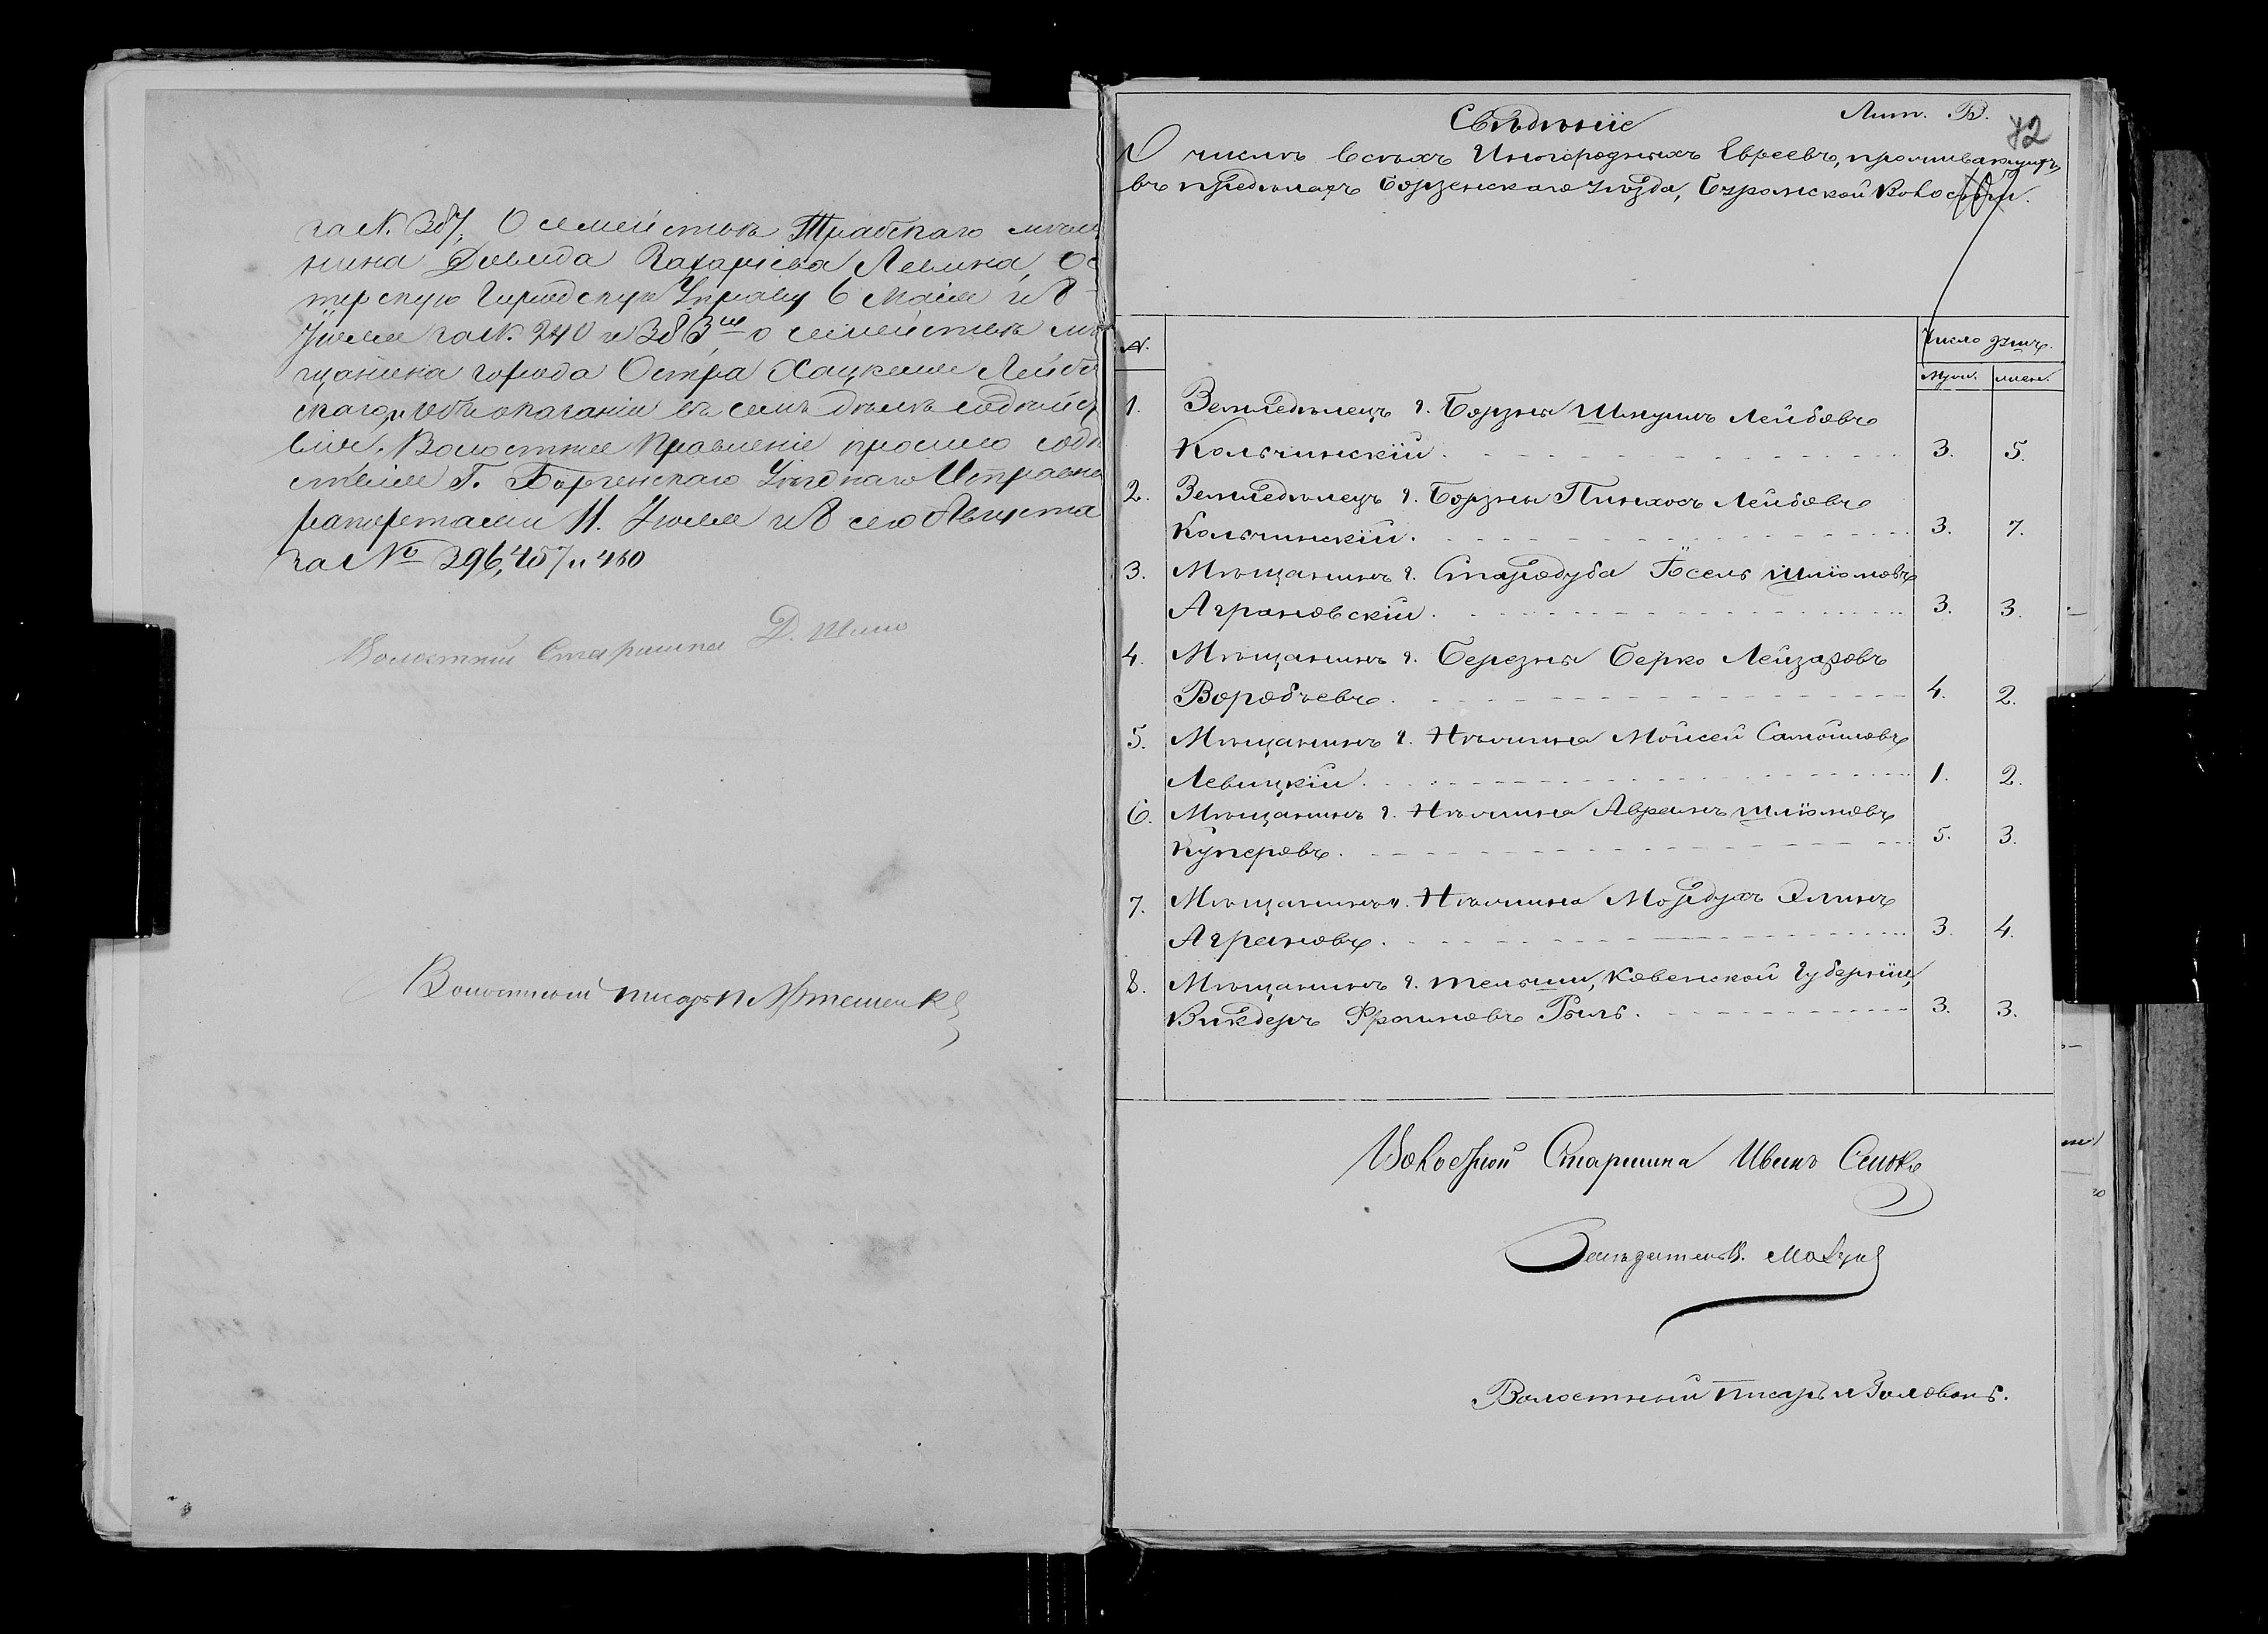 за №. 387, О семействе Трабскаго меща
нина Довида Захарьева Левина, Ос
терскую Городскую Управу 6 Мая и 8
Июля за №. 240 и 383ш о семействе мѣ
щанина города Остра Хацкеля Лейбо
скаго, и объ оказаніи въ семъ дѣлѣ содѣйст
вія, Волостное Правленіе просило содѣ
ствія Г. Борзенскаго Уѣзднаго Исправни
рапортами 11. Июля и 8 сего Августа
за № 396, 457 и 460
Волостний Старшина Д. Шило
Волостной писарь
Лит. В.
Свѣдѣніе
42
О числѣ всѣхъ Иногородныхъ Евреевъ, проживающихъ
въ предѣлахъ Борзенскаго уѣзда, Буромской волости.
№. Число душъ.
Муж. жен.
1. Земледѣлецъ г. Борзны Шнуимъ Лейбовъ
Кольчинскій. 3. 5.
2. Земледѣлецъ г. Борзны Пинхосъ Лейбовъ
Кольчинскій. 3. 7.
3. Мѣщанинъ г. Стародуба Іосель Шліомовъ
Аграновскій. 3. 3.
4. Мѣщанинъ г. Березны Берко Лейзаровъ
Воробьевъ. 4. 2.
5. Мѣщанинъ г. Нѣжина Мойсей Самойловъ
Левицкій. 1. 2.
6. Мѣщанинъ г. Нѣжина Абрамъ Шліомовъ
Куперовъ. 5. 3.
7. Мѣщанинъ г. Нѣжина Мордухъ Элинъ
Аграновъ. 3. 4.
8. Мѣщанинъ г. Тельши, Ковенской Губерніи,
Викдеръ Фроимовъ Гиль. 3. 3.
Волостной Старшина Иванъ
Волостный писарь Головань.